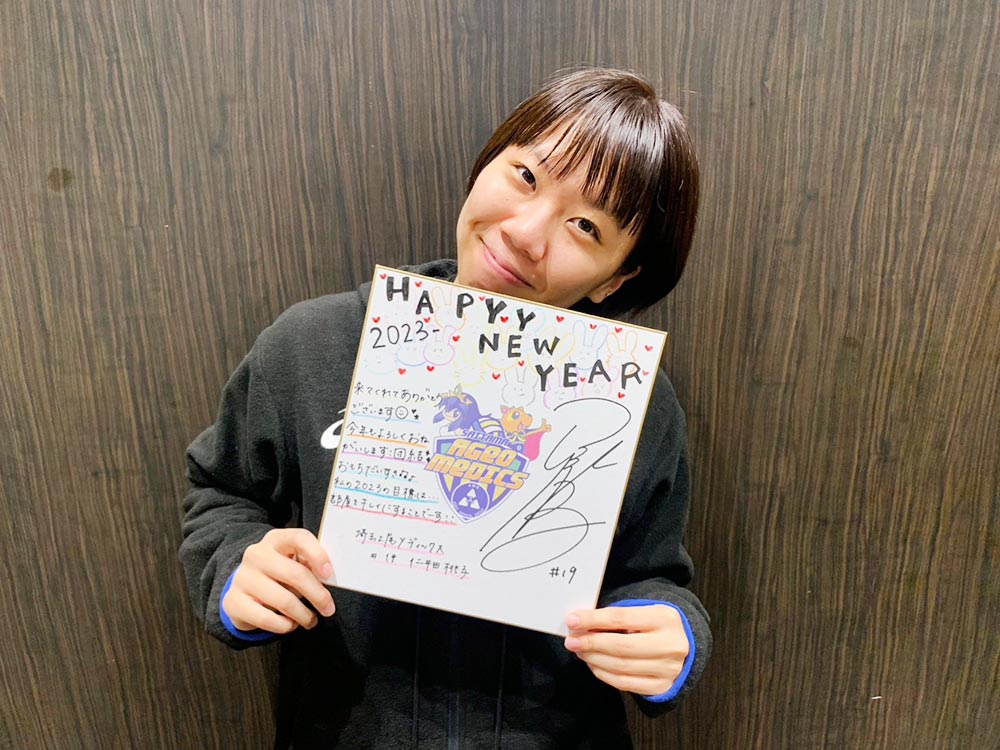 HAPYY
2023- NEW
YEAR
来てくれてありがとう
ございます
今年もよろしくおね
がいします 団結
おもちだいすきなな
私の2023の目標は...
部屋をキレイにすることでーす
SAITAMA
AGEO
MEDICS
埼玉上尾メディックス
#19 仁井田桃子
#19